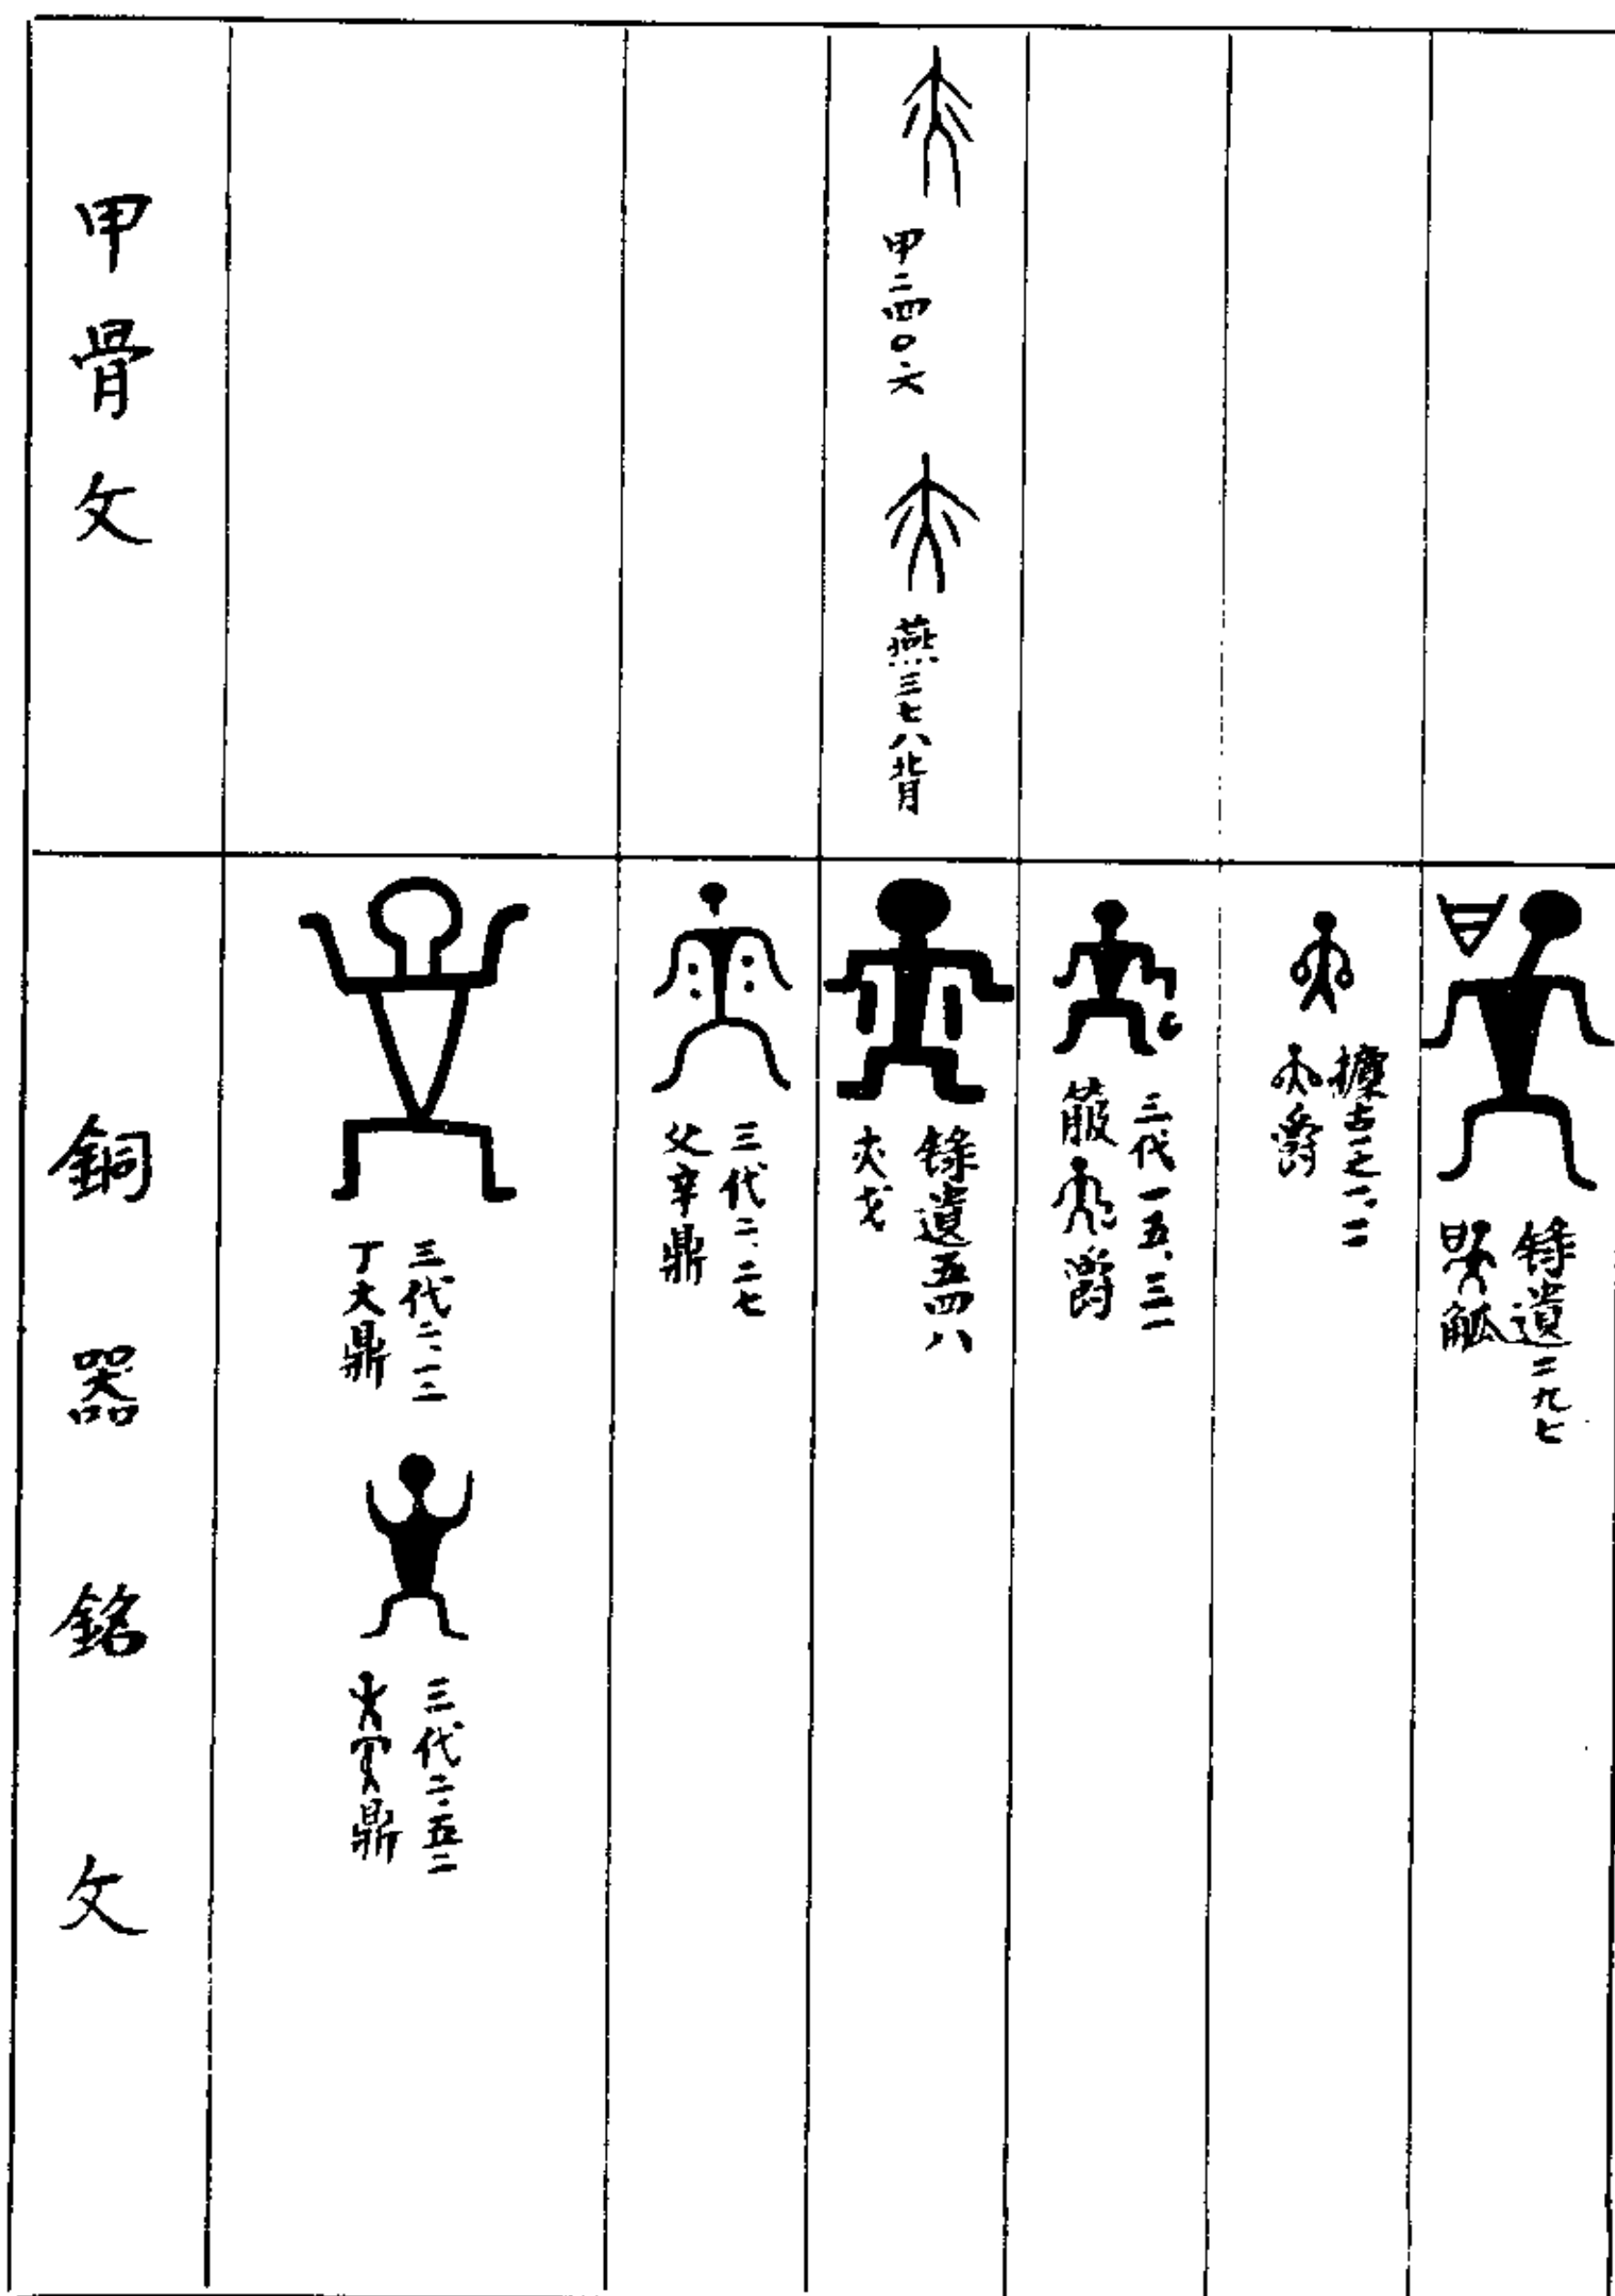 甲骨文
甲二四〇六
燕三七八背
銅器銘文
三代二·二
丁大鼎
三代二·五二
鼎
三代二·二七
父辛鼎
錄遺五四八
夾戈
三代一五·三一
箙 爵
攈古一之二·二
爵
錄遺三九七
觚